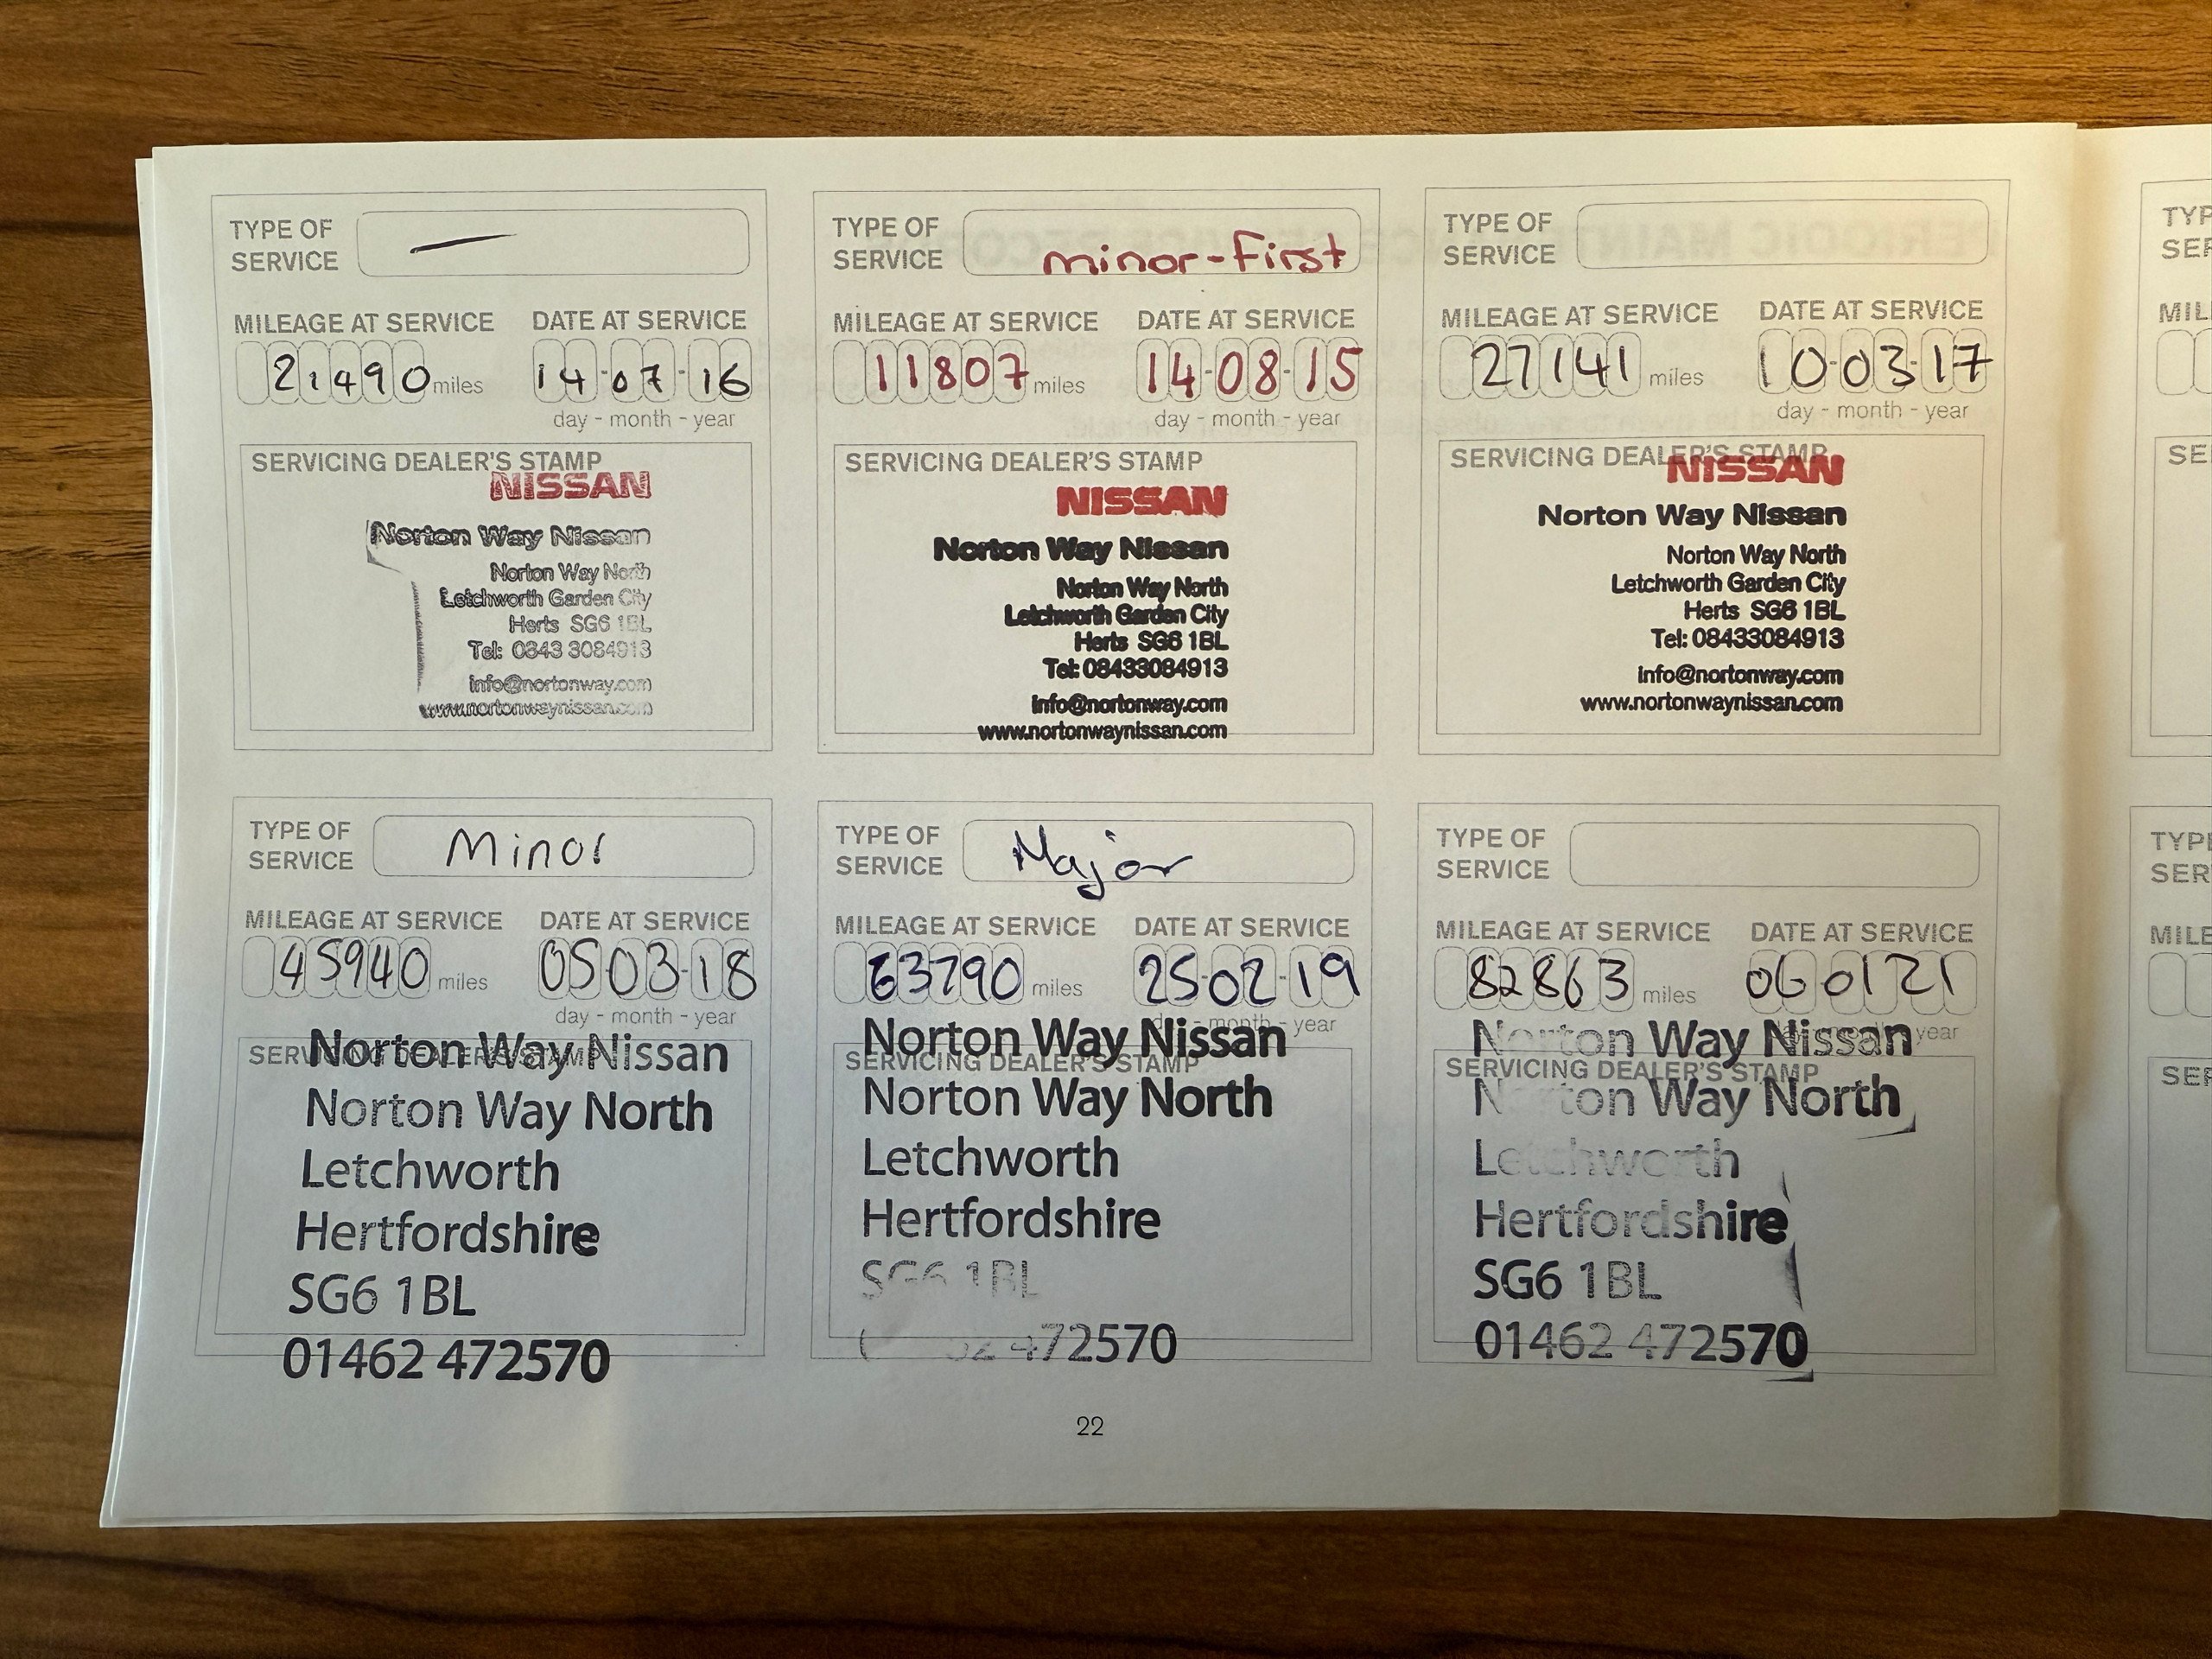 TYPE OF
SERVICE
—
MILEAGE AT SERVICE DATE AT SERVICE
21490 miles 14-07-16
day - month - year
SERVICING DEALER'S STAMP
NISSAN
Norton Way Nissan
Norton Way North
Letchworth Garden City
Herts SG6 1BL
Tel: 0843 3084913
info@nortonway.com
www.nortonwaynissan.com
TYPE OF
SERVICE
minor-First
MILEAGE AT SERVICE DATE AT SERVICE
11807 miles 14-08-15
day - month - year
SERVICING DEALER'S STAMP
NISSAN
Norton Way Nissan
Norton Way North
Letchworth Garden City
Herts SG6 1BL
Tel: 08433084913
info@nortonway.com
www.nortonwaynissan.com
TYPE OF
SERVICE
MILEAGE AT SERVICE DATE AT SERVICE
27141 miles 10-03-17
day - month - year
SERVICING DEALER'S STAMP
NISSAN
Norton Way Nissan
Norton Way North
Letchworth Garden City
Herts SG6 1BL
Tel: 08433084913
info@nortonway.com
www.nortonwaynissan.com
TYPE OF
SERVICE
Minor
MILEAGE AT SERVICE DATE AT SERVICE
45940 miles 05-03-18
day - month - year
SERVICING DEALER'S STAMP
Norton Way Nissan
Norton Way North
Letchworth
Hertfordshire
SG6 1BL
01462 472570
TYPE OF
SERVICE
Major
MILEAGE AT SERVICE DATE AT SERVICE
63790 miles 25-02-19
month - year
SERVICING DEALER'S STAMP
Norton Way Nissan
Norton Way North
Letchworth
Hertfordshire
SG6 1BL
472570
TYPE OF
SERVICE
MILEAGE AT SERVICE DATE AT SERVICE
82863 miles 060121
year
SERVICING DEALER'S STAMP
Norton Way Nissan
Norton Way North
Letchworth
Hertfordshire
SG6 1BL
01462 472570
22